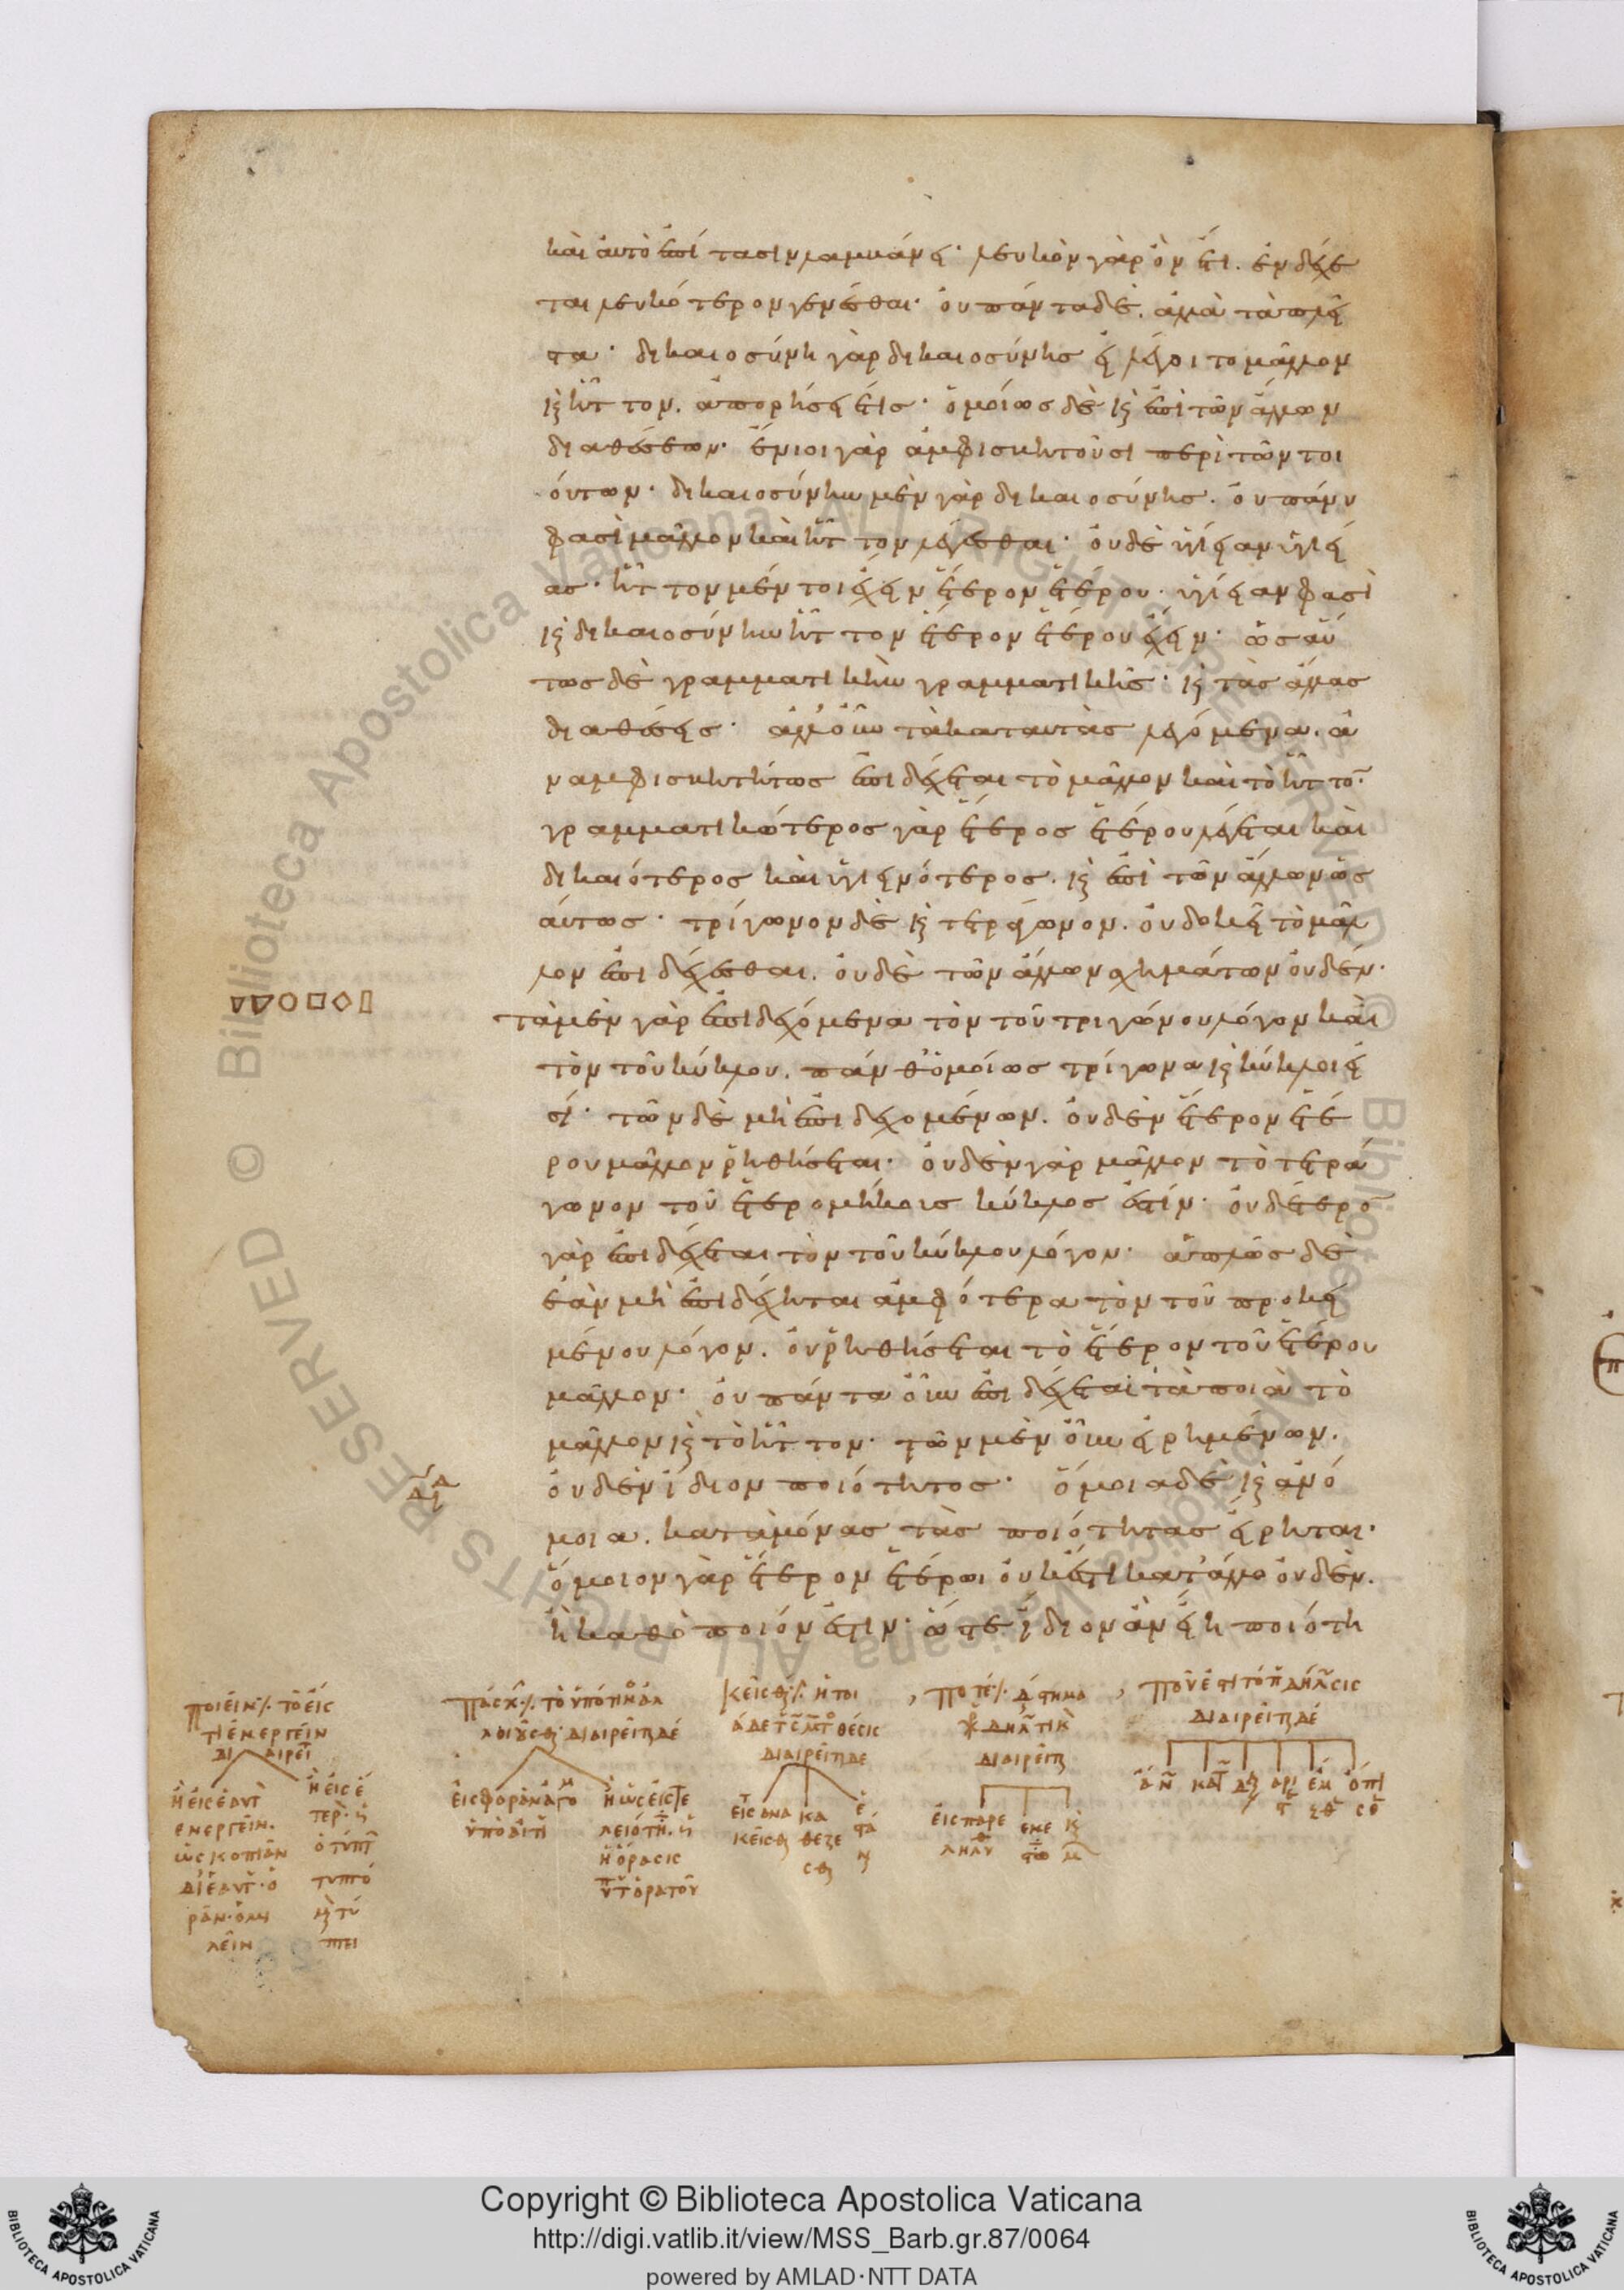 καὶ αὐτὸ ἐπίτασιν λαμβάνει· λευκὸν γὰρ ὂν ἔτι. ἐνδέχε
ται λευκότερον γενέσθαι· οὐ πάντα δέ. ἀλλὰ τὰ πλεῖ
στα· δικαιοσύνη γὰρ δικαιοσύνης εἰ λέγοιτο μᾶλλον
καὶ ἧττον. ἀπορήσειέ τις· ὁμοίως δὲ καὶ ἐπὶ τῶν ἄλλων
διαθέσεων· ἔνιοι γὰρ ἀμφισβητοῦσι περὶ τῶν τοι
ούτων· δικαιοσύνην μὲν γὰρ δικαιοσύνης. οὐ πάνυ
φασὶ μᾶλλον καὶ ἧττον λέγεσθαι· οὐδὲ ὑγίειαν ὑγιεί
ας· ἧττον μέντοι ἔχειν ἕτερον ἑτέρου. ὑγίειαν φασὶ
καὶ δικαιοσύνην ἧττον ἕτερον ἑτέρου ἔχειν· ὡσαύ
τως δὲ γραμματικὴν γραμματικῆς· καὶ τὰς ἄλλας
διαθέσεις· ἀλλ' οὖν τὰ κατὰ ταύτας λεγόμενα. ἀ
ναμφισβητήτως ἐπιδέχεται τὸ μᾶλλον καὶ τὸ ἧττον·
γραμματικώτερος γὰρ ἕτερος ἑτέρου λέγεται καὶ
δικαιότερος καὶ ὑγιεινότερος. καὶ ἐπὶ τῶν ἄλλων ὡς
αύτως· τρίγωνον δὲ καὶ τετράγωνον. οὐ δοκεῖ τὸ μᾶλ
λον ἐπιδέχεσθαι. οὐδὲ τῶν ἄλλων σχημάτων οὐδέν·
τὰ μὲν γὰρ ἐπιδεχόμενα τὸν τοῦ τριγώνου λόγον καὶ
τὸν τοῦ κύκλου. πάνθ' ὁμοίως τρίγωνα καὶ κύκλοι εἰ
σί· τῶν δὲ μὴ ἐπιδεχομένων. οὐδὲν ἕτερον ἑτέ
ρου μᾶλλον ῥηθήσεται· οὐδὲν γὰρ μᾶλλον τὸ τετρά
γωνον τοῦ ἑτερομήκους κύκλος ἐστίν· οὐδέτερον
γὰρ ἐπιδέχεται τὸν τοῦ κύκλου λόγον· ἁπλῶς δὲ
ἐὰν μὴ ἐπιδέχηται ἀμφότερα τὸν τοῦ προκει
μένου λόγον. οὐ ῥηθήσεται τὸ ἕτερον τοῦ ἑτέρου
μᾶλλον· οὐ πάντα οὖν ἐπιδέχεται τὰ ποιὰ τὸ
μᾶλλον καὶ τὸ ἧττον· τῶν μὲν οὖν εἰρημένων.
οὐδὲν ἴδιον ποιότητος· ὅμοια δὲ καὶ ἀνό
μοια. κατὰ μόνας τὰς ποιότητας εἴρηται·
ὅμοιον γὰρ ἕτερον ἑτέρωι οὐκ ἔστι κατ' ἄλλο οὐδέν.
ἢ καθὸ ποιόν ἐστιν· ὥστε ἴδιον ἂν εἴη ποιότη
ποιεῖν·/. τὸ εἴς
τι ἐνεργεῖν
διαιρεῖ
ἢ εἰς ἑαυτ
ενεργεῖν.
ὡς κοπιᾶν
δι' ἑαυτ· ὁ
ρᾶν· ὁμι
λεῖν
ἢ εἰς ἕ
τερ·
ὁ τύπτ
διαιρεῖται δέ
ἢ ὅρασις
ὁρατοῦ
διαιρεῖται δε
διαιρεῖται
διαιρεῖται δέ
Copyright © Biblioteca Apostolica Vaticana
http://digi.vatlib.it/view/MSS_Barb.gr.87/0064
powered by AMLAD·NTT DATA
BIBLIOTECA APOSTOLICA VATICANA
BIBLIOTECA APOSTOLICA VATICANA